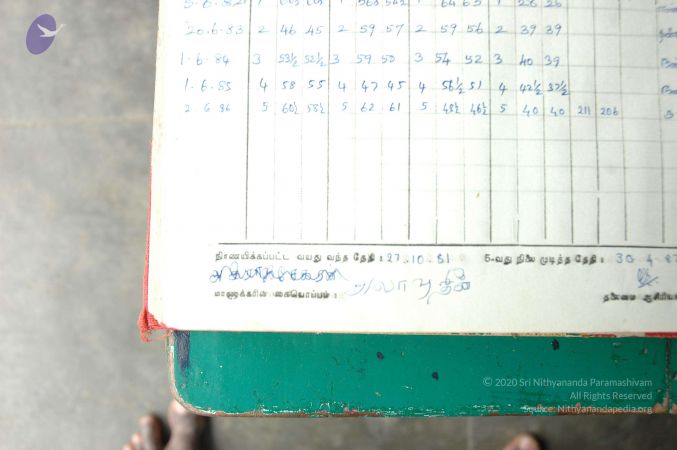 5.6.82 1
20.6.83 2 46 45 2 59 57 2 59 56 2 39 39
1.6.84 3 53½ 52½ 3 59 50 3 54 52 3 40 39
1.6.85 4 58 55 4 47 45 4 56½ 51 4 42½ 37½
2.6.86 5 60½ 58½ 5 62 61 5 48½ 46½ 5 40 40 211 206
நிர்ணயிக்கப்பட்ட வயது வந்த தேதி : 27.10.81 5-வது நிலை முடித்த தேதி : 30.4.87
அலாவுதீன்
மாணாக்கரின் கையொப்பம் : தலைமை ஆசிரிய
© 2020 Sri Nithyananda Paramashivam
All Rights Reserved
Source: Nithyanandapedia.org